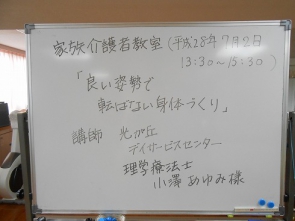 家族介護者教室(平成28年7月2日
13:30~15:30)
「良い姿勢で
転ばない身体づくり」
講師 光が丘
デイサービスセンター
理学療法士
小澤あゆみ様